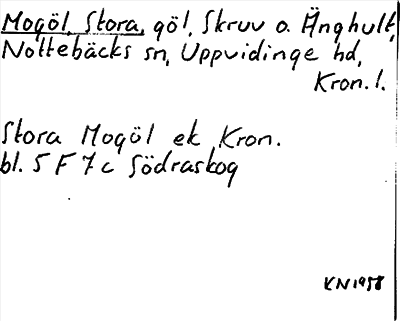 Mogöl, Stora, göl, Skruv o. Änghult,
Nottebäcks sn, Uppvidinge hd,
Kron. l.
Stora Mogöl ek Kron.
bl. 5 F 7 c Södraskog
KN 1958